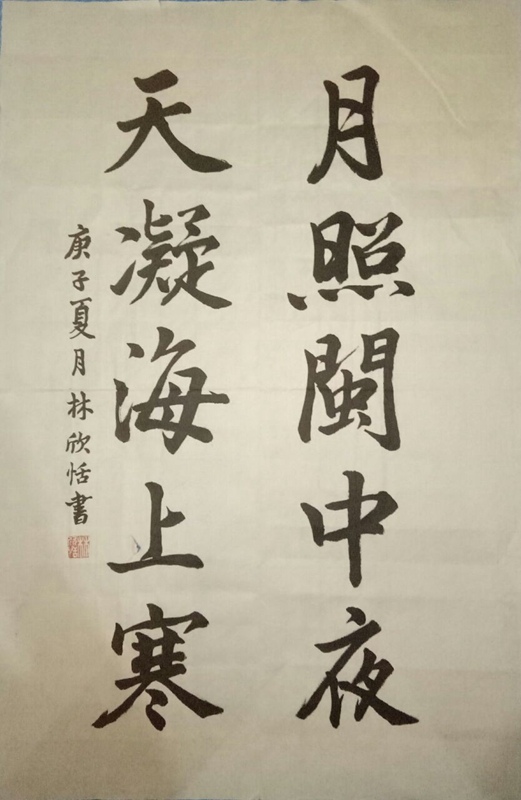 月照閩中夜
天凝海上寒
庚子夏月林欣恬書